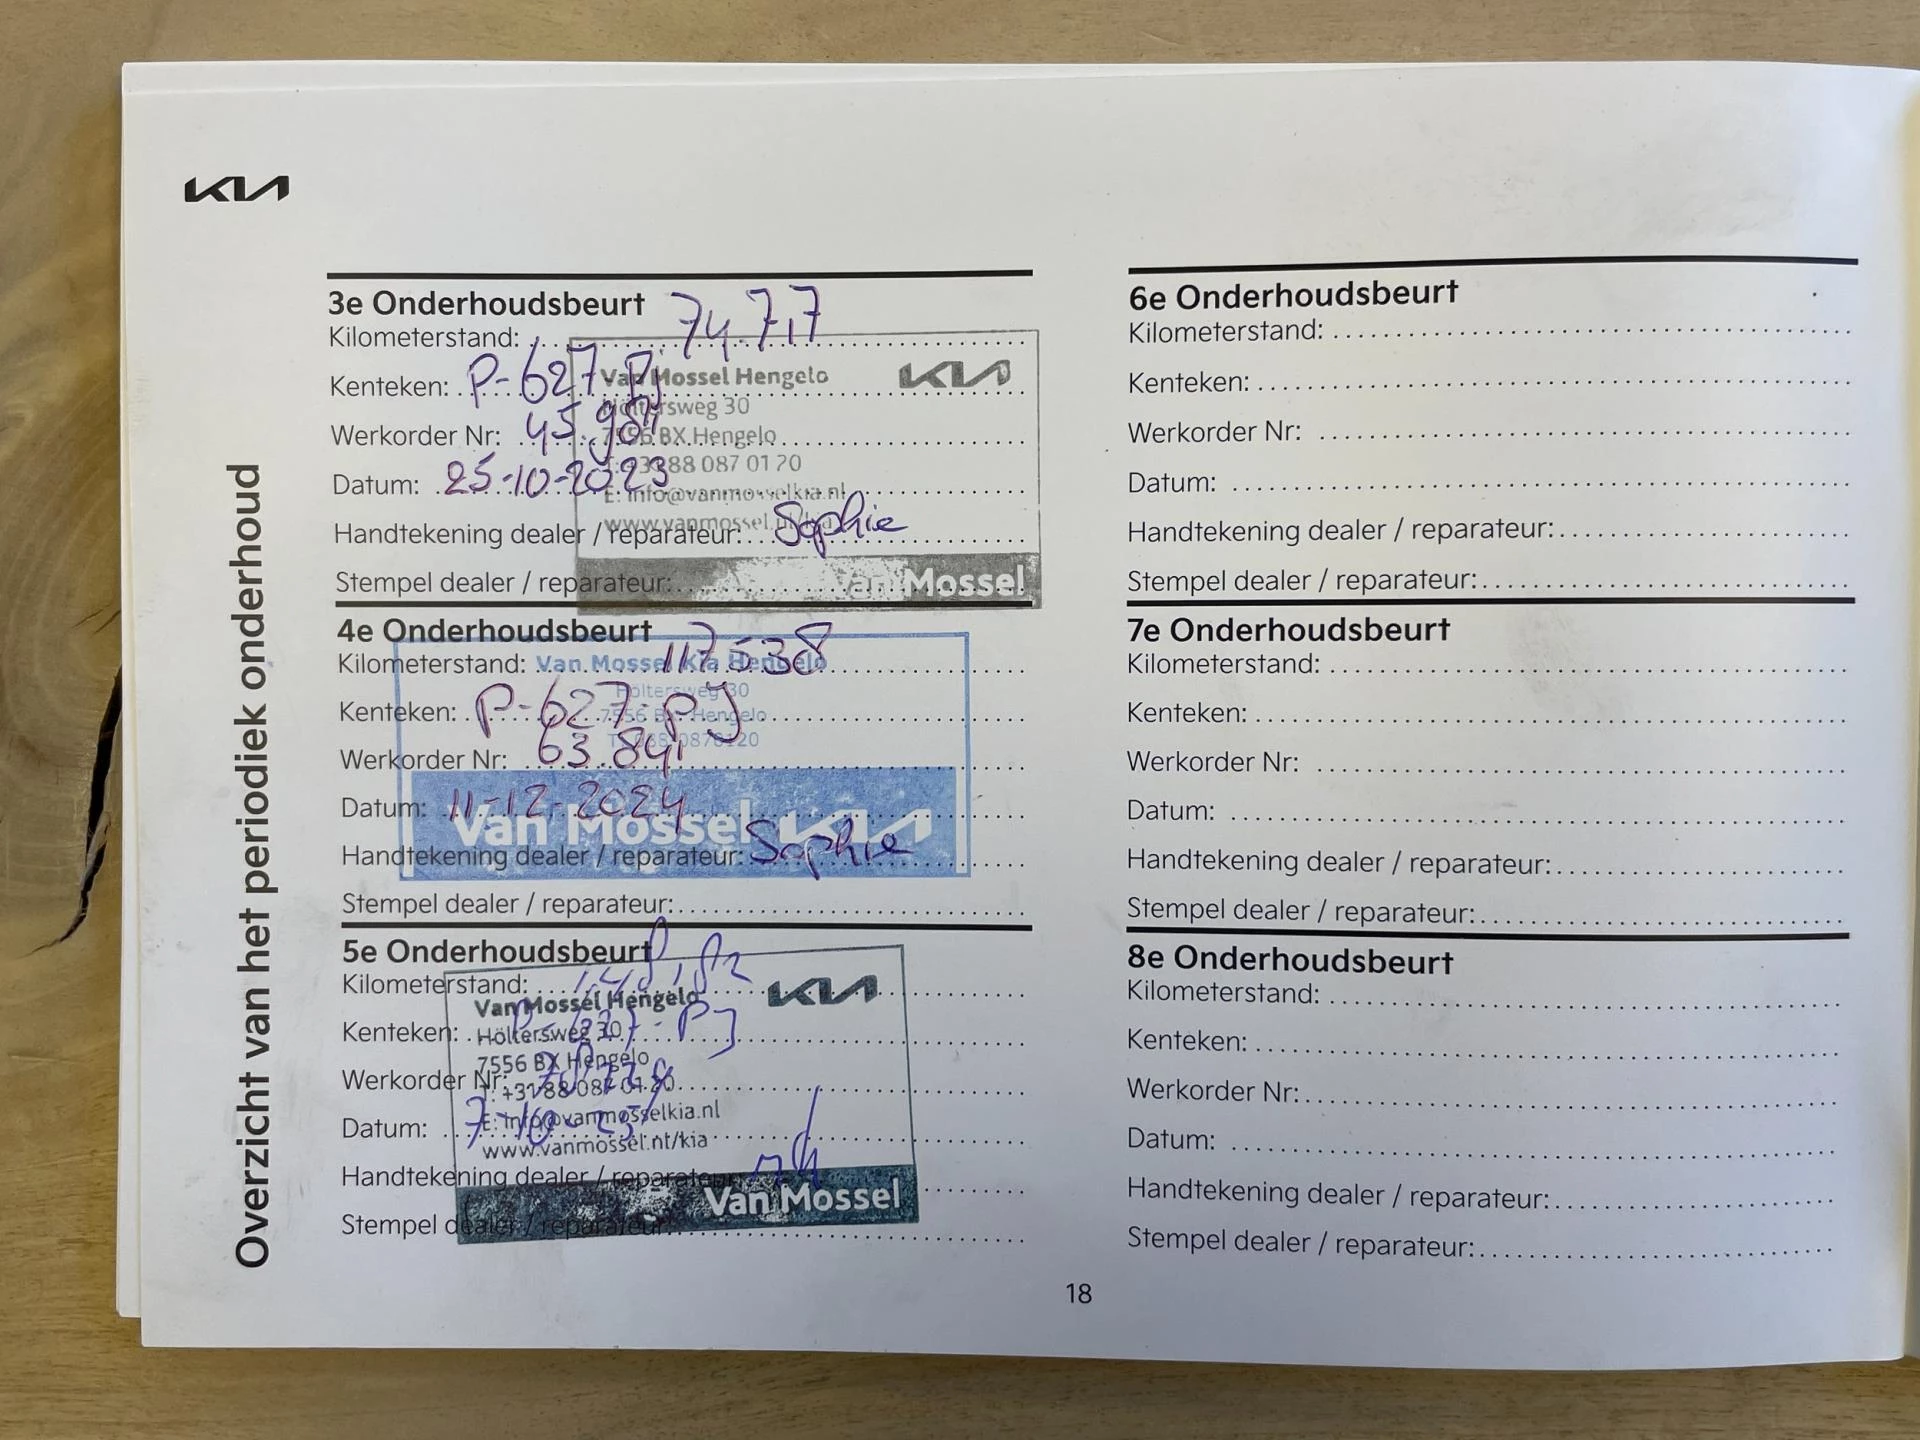 KIA
Overzicht van het periodiek onderhoud
3e Onderhoudsbeurt
Kilometerstand: 74.717
Kenteken: P-627-PJ
Werkorder Nr: 45.984
Datum: 25-10-2023
Handtekening dealer / reparateur: Sophie
Stempel dealer / reparateur:
Van Mossel Hengelo KIA
Höltersweg 30
7556 BX Hengelo
T: +3188 087 01 20
E: info@vanmosselkia.nl
www.vanmossel.nl/kia
Van Mossel
4e Onderhoudsbeurt
Kilometerstand: 117538
Kenteken: P-627-PJ
Werkorder Nr: 63.841
Datum: 11-12-2024
Handtekening dealer / reparateur: Sophie
Stempel dealer / reparateur:
Van Mossel Kia Hengelo
Höltersweg 30
7556 BX Hengelo
Van Mossel KIA
5e Onderhoudsbeurt
Kilometerstand:
Kenteken: P-627-PJ
Werkorder Nr:
Datum: 7-10-25
Handtekening dealer / reparateur:
Stempel dealer / reparateur:
Van Mossel Hengelo KIA
Höltersweg 30
7556 BX Hengelo
T: +3188 087 01 20
E: info@vanmosselkia.nl
www.vanmossel.nl/kia
Van Mossel
6e Onderhoudsbeurt
Kilometerstand:
Kenteken:
Werkorder Nr:
Datum:
Handtekening dealer / reparateur:
Stempel dealer / reparateur:
7e Onderhoudsbeurt
Kilometerstand:
Kenteken:
Werkorder Nr:
Datum:
Handtekening dealer / reparateur:
Stempel dealer / reparateur:
8e Onderhoudsbeurt
Kilometerstand:
Kenteken:
Werkorder Nr:
Datum:
Handtekening dealer / reparateur:
Stempel dealer / reparateur:
18